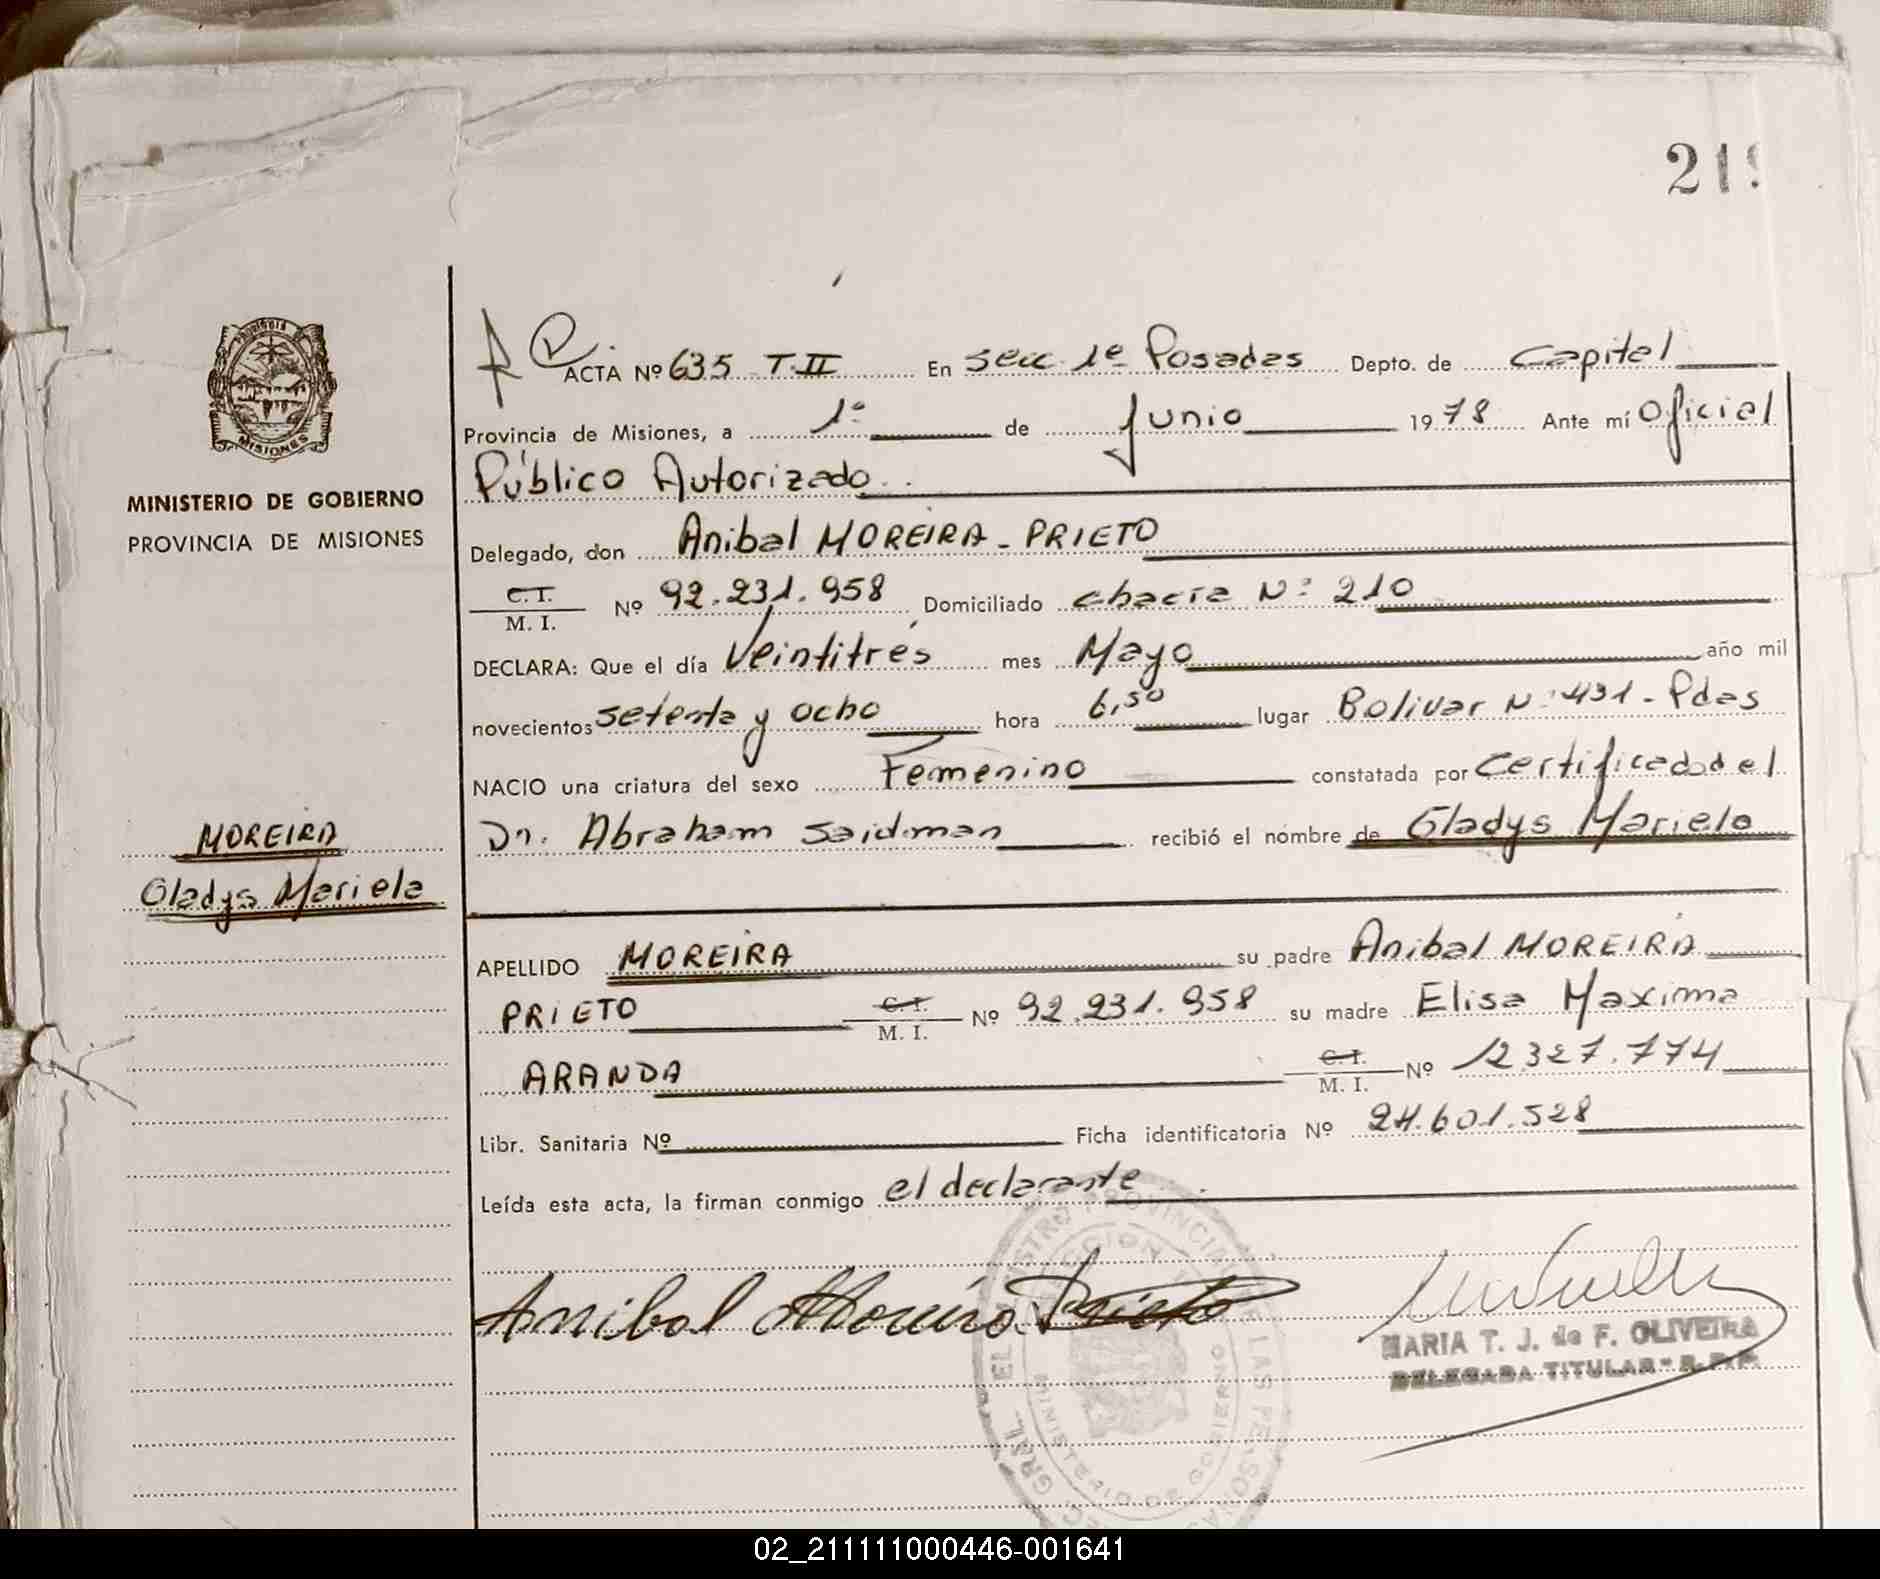 219
PROVINCIA
MISIONES
MINISTERIO DE GOBIERNO
PROVINCIA DE MISIONES
MOREIRA
Gladys Mariela
ACTA Nº 635 T.II En Secc 1ª Posadas Depto. de Capital
Provincia de Misiones, a 1º de Junio 1978 Ante mí Oficial
Público Autorizado
Delegado, don Anibal MOREIRA - PRIETO
C.I. / M. I. Nº 92.231.958 Domiciliado chacra Nº 210
DECLARA: Que el día Veintitrés mes Mayo año mil
novecientos setenta y ocho hora 6,50 lugar Bolivar Nº 431 - Pdas
NACIO una criatura del sexo Femenino constatada por certificado del
Dr. Abraham Saidman recibió el nombre de Gladys Mariela
APELLIDO MOREIRA su padre Anibal MOREIRA
PRIETO C.I. / M. I. Nº 92.231.958 su madre Elisa Maxima
ARANDA C.I. / M. I. Nº 12.327.774
Libr. Sanitaria Nº Ficha identificatoria Nº 24.601.528
Leída esta acta, la firman conmigo el declarante
Anibal Moreira Prieto
MARIA T. J. de F. OLIVEIRA
DELEGADA TITULAR
02_211111000446-001641